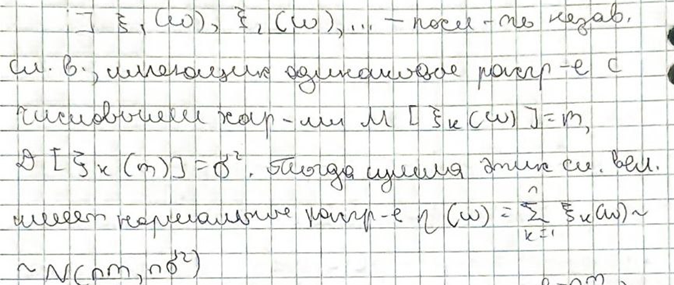 ] ξ₁(ω), ξ₂(ω), ... – посл-ть незав.
сл. в., имеющих одинаковое распр-е с
числовыми хар-ми M[ξₖ(ω)]=m,
D[ξₖ(m)]=σ². Тогда сумма этих сл. вел.
имеет нормальное распр-е η(ω) = ∑ₖ₌₁ⁿ ξₖ(ω) ~
~ N(nm, nσ²)